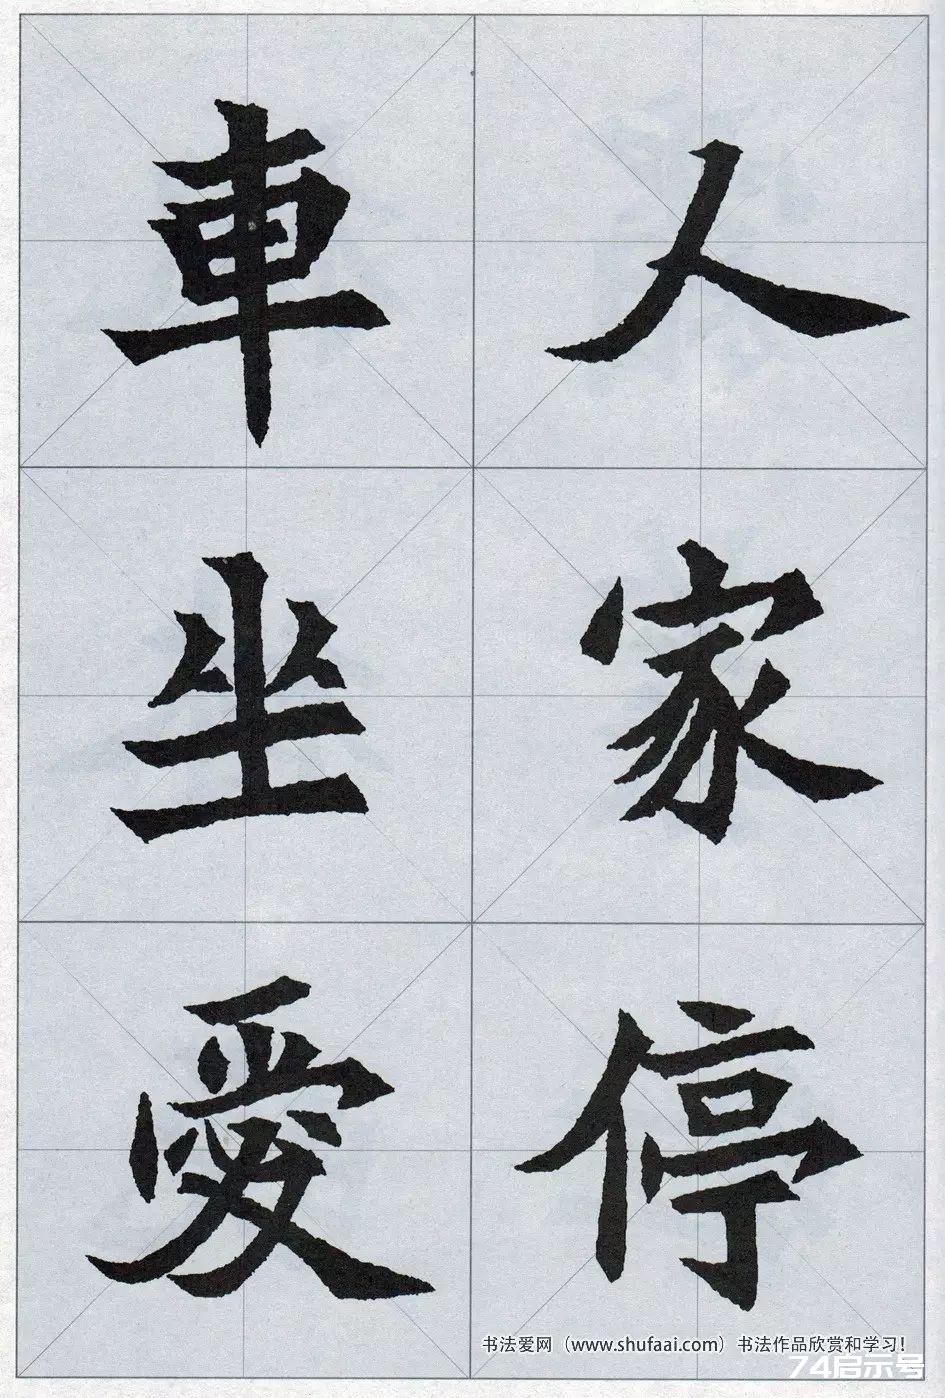 人家停
車坐愛
书法爱网（www.shufaai.com）书法作品欣赏和学习！
74启示号